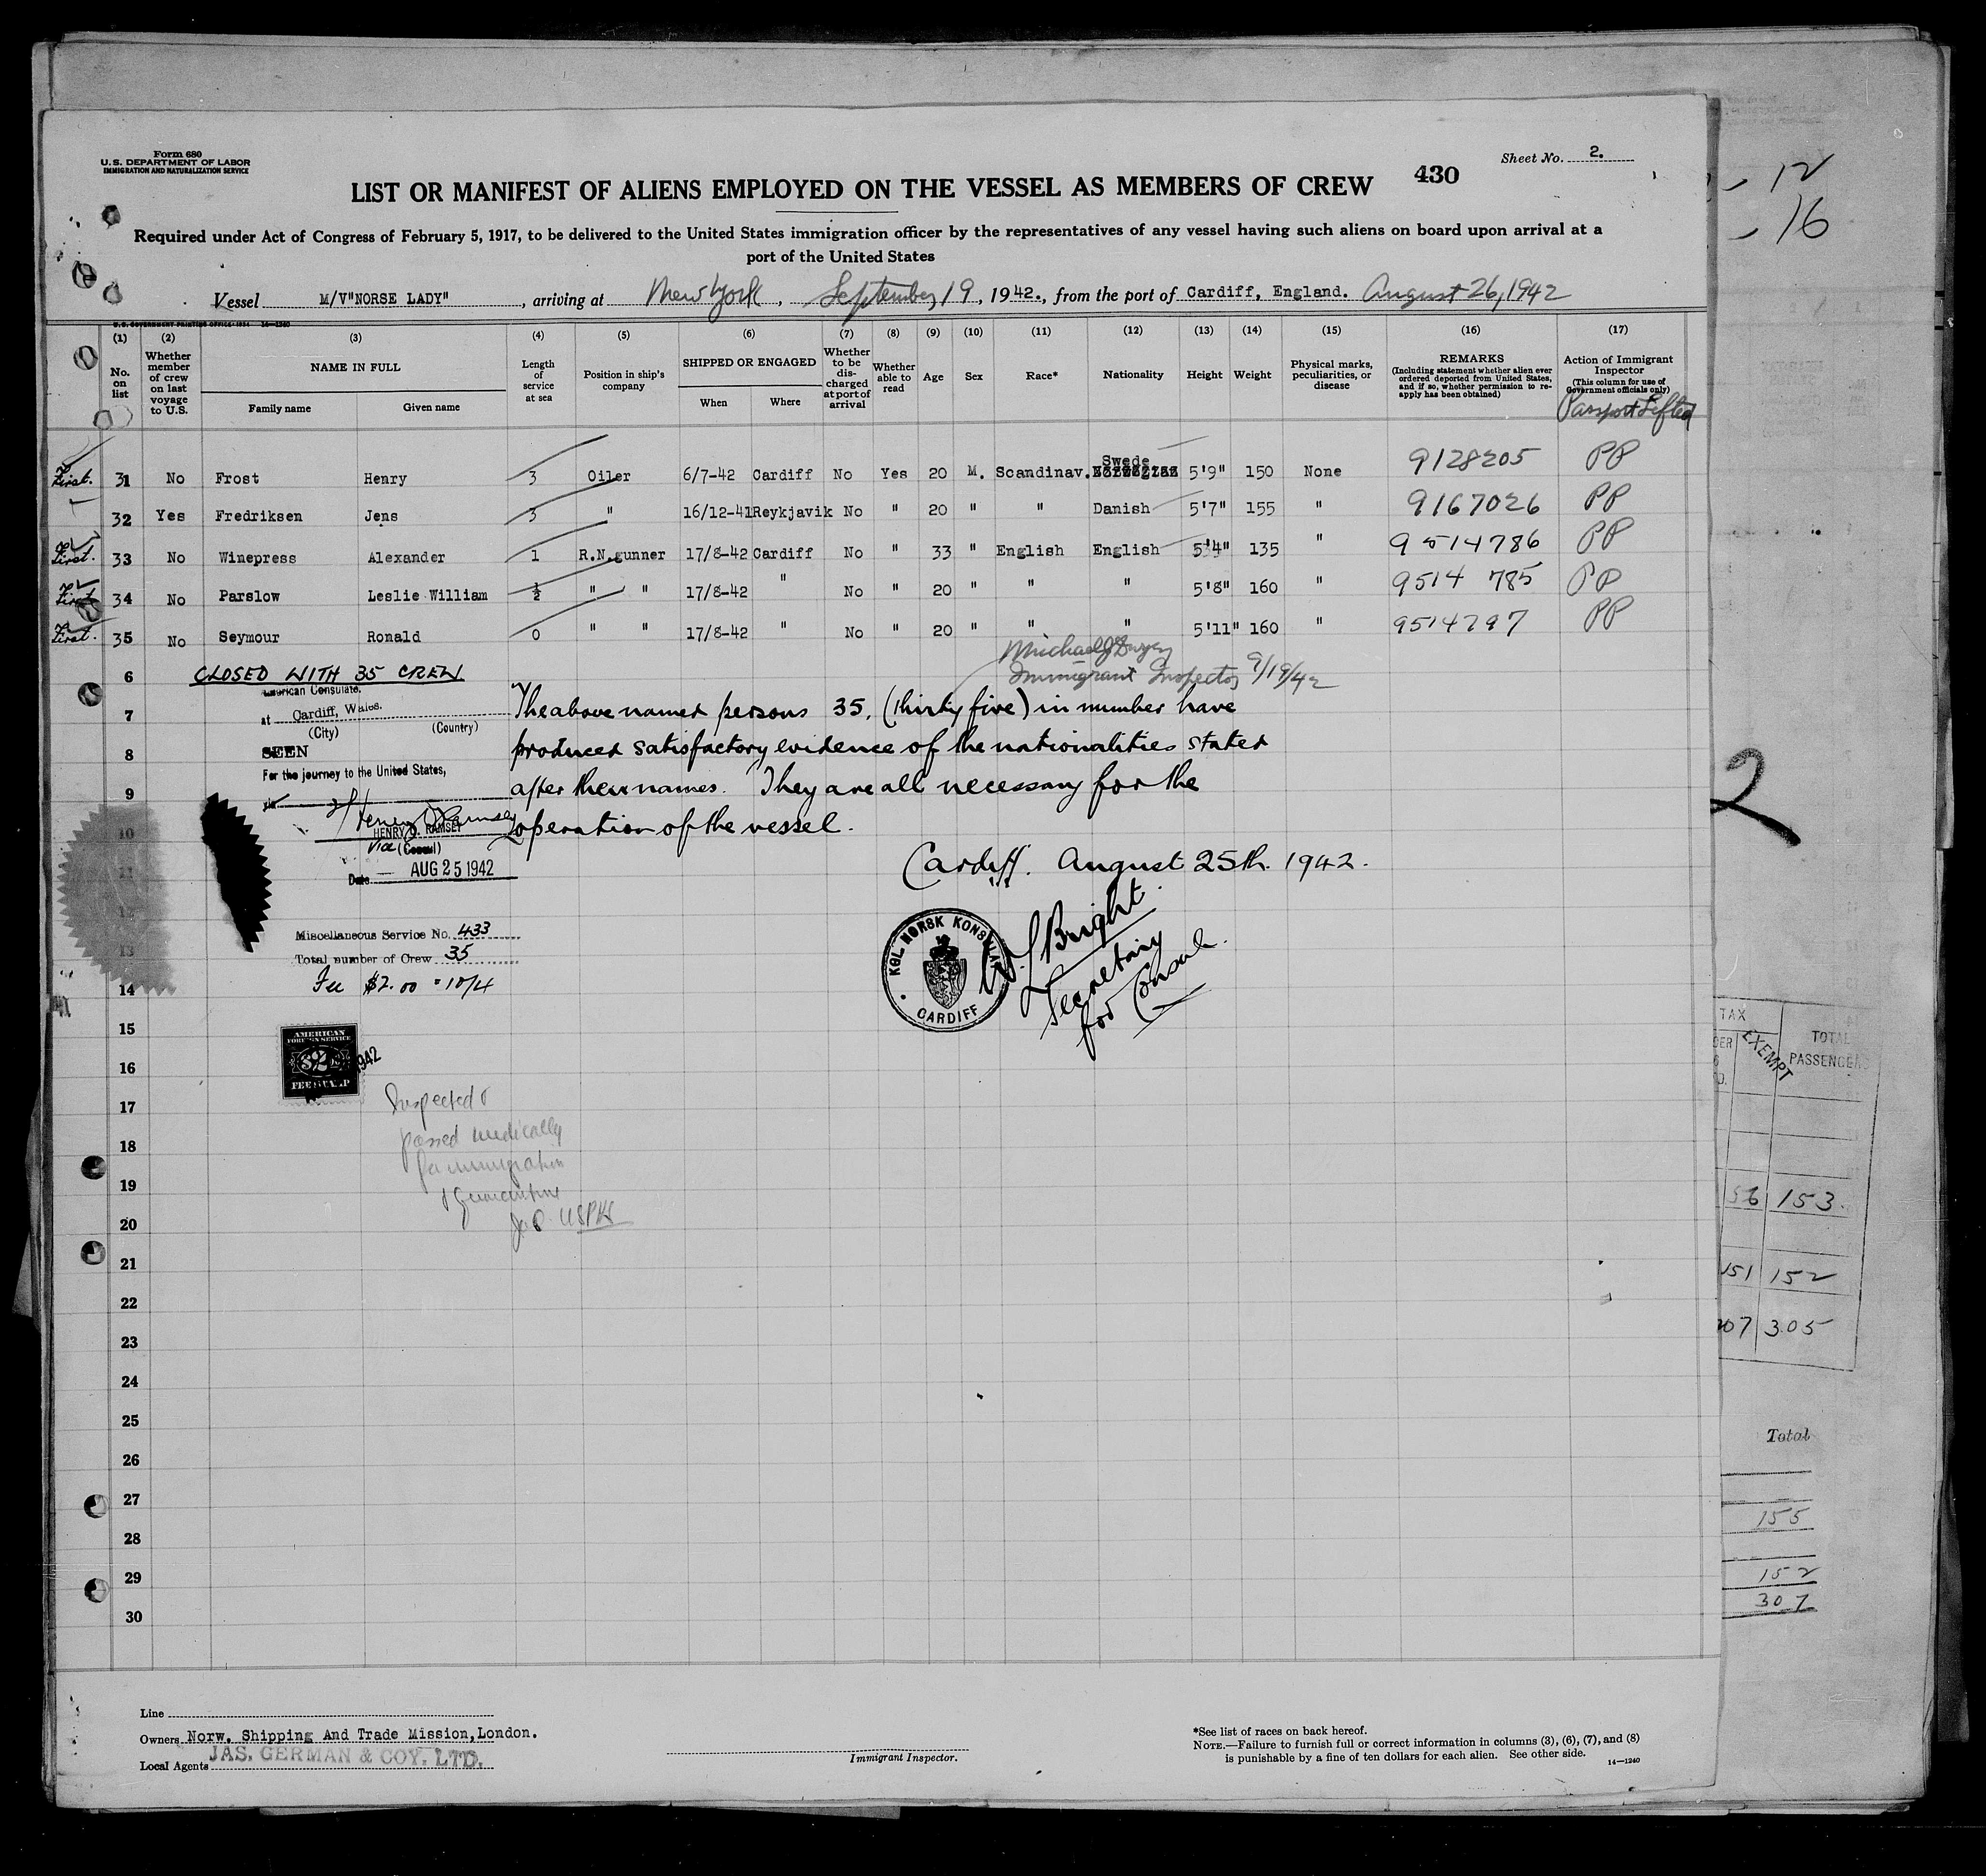 Form 680
U. S. DEPARTMENT OF LABOR
IMMIGRATION AND NATURALIZATION SERVICE
Sheet No. 2.
LIST OR MANIFEST OF ALIENS EMPLOYED ON THE VESSEL AS MEMBERS OF CREW 430
Required under Act of Congress of February 5, 1917, to be delivered to the United States immigration officer by the representatives of any vessel having such aliens on board upon arrival at a
port of the United States
Vessel M/V"NORSE LADY", arriving at New York, September 19, 1942., from the port of Cardiff, England. August 26, 1942
U. S. GOVERNMENT PRINTING OFFICE: 1934 14—1240
(1) (2) (3) (4) (5) (6) (7) (8) (9) (10) (11) (12) (13) (14) (15) (16) (17)
No. on list
Whether member of crew on last voyage to U.S.
NAME IN FULL
Family name Given name
Length of service at sea
Position in ship's company
SHIPPED OR ENGAGED
When Where
Whether to be discharged at port of arrival
Whether able to read
Age
Sex
Race*
Nationality
Height
Weight
Physical marks, peculiarities, or disease
REMARKS
(Including statement whether alien ever ordered deported from United States, and if so, whether permission to reapply has been obtained)
Action of Immigrant Inspector
(This column for use of Government officials only)
Passport Lifted
First. 31 No Frost Henry 3 Oiler 6/7-42 Cardiff No Yes 20 M. Scandinav. Swede 5'9" 150 None 9128205 PP
32 Yes Fredriksen Jens 3 " 16/12-41 Reykjavik No " 20 " " Danish 5'7" 155 " 9167026 PP
First. 33 No Winepress Alexander 1 R.N.gunner 17/8-42 Cardiff No " 33 " English English 5'4" 135 " 9514786 PP
First 34 No Parslow Leslie William ½ " " 17/8-42 " No " 20 " " " 5'8" 160 " 9514 785 PP
First. 35 No Seymour Ronald 0 " " 17/8-42 " No " 20 " " " 5'11" 160 " 9514797 PP
Immigrant Inspector 9/19/42
6 CLOSED WITH 35 CREW
American Consulate.
at Cardiff, Wales.
(City) (Country)
SEEN
For the journey to the United States,
Henry O Ramsey
HENRY O. RAMSEY
Vice (Consul)
Date AUG 25 1942
The above named persons 35, (thirty five) in number have
produced satisfactory evidence of the nationalities stated
after their names. They are all necessary for the
operation of the vessel.
Cardiff. August 25th. 1942.
KGL. NORSK KONSULAT
CARDIFF
Bright
Secretary
for Consul.
Miscellaneous Service No. 433
Total number of Crew 35
Fee $2.00 = 10/4
AMERICAN
FOREIGN SERVICE
$2
FEE STAMP
1942
Inspected &
passed medically
for immigration
& quarantine
USPHS
7
8
9
10
11
12
13
14
15
16
17
18
19
20
21
22
23
24
25
26
27
28
29
30
Line
Owners Norw. Shipping And Trade Mission, London.
Local Agents JAS. GERMAN & COY. LTD.
Immigrant Inspector.
*See list of races on back hereof.
NOTE.—Failure to furnish full or correct information in columns (3), (6), (7), and (8)
is punishable by a fine of ten dollars for each alien. See other side.
14—1240
12
16
2
TAX
EXEMPT
TOTAL
PASSENGERS
56 153.
151 152
307 305
Total
155
152
307